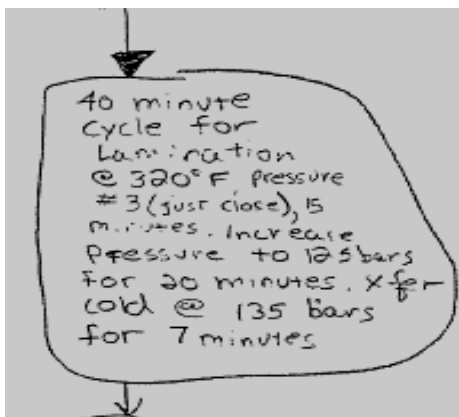 40 minute
cycle for
Lamination
@ 320°F pressure
# 3 (just close), 15
minutes. Increase
Pressure to 125 bars
for 20 minutes. Xfer
cold @ 135 bars
for 7 minutes